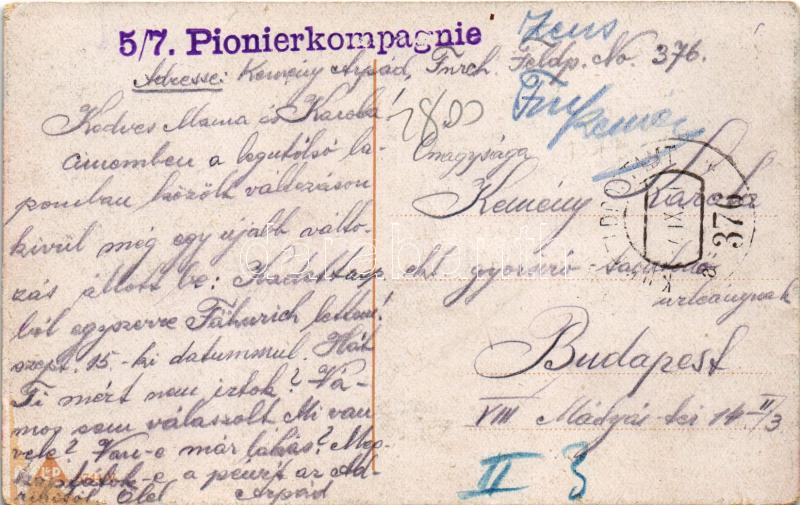 5/7. Pionierkompagnie
Zens
Adresse: Kemény Árpád, Fnrch. Feldp. No. 376.
Kedves Mama és Karola!
Címemben a legutolsó la-
pomban közölt változáson
kívül még egy újabb válto-
zás állott be: Kadettasp
ból egyszerre Fähnrich lettem!
szept. 15.-ki datummal. Hát
Ti mért nem irtok? Va-
mos sem válaszolt. Mi van
vele? Van-e már lakás? Meg-
kaptátok-e a pénzt az Ad-
Ölel Árpád
2800
Kemény
Őnagysága
Kemény Karola
gyorsiró
urleánynak
Budapest
VIII Mátyás-tér 14 II/3
376
II 3
darabanth